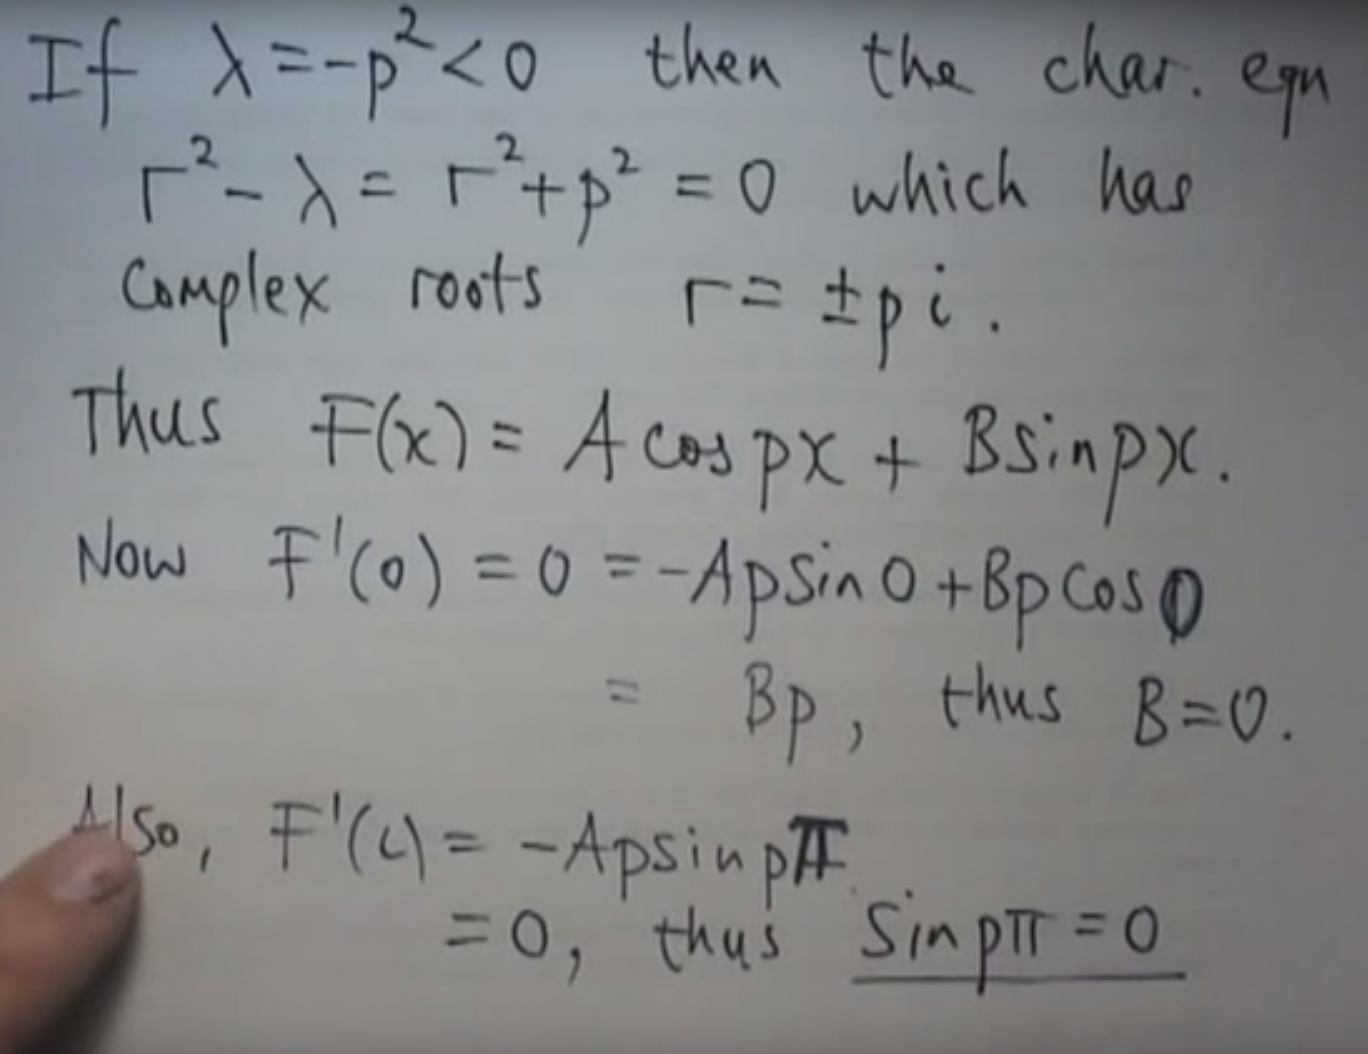 If λ = -p² < 0 then the char. eqn
r² - λ = r² + p² = 0 which has
Complex roots r = ± p i.
Thus F(x) = A cos px + B sin px.
Now F'(0) = 0 = -Ap sin 0 + Bp cos 0
= Bp, thus B = 0.
Also, F'(L) = -Ap sin pπ
= 0, thus Sin pπ = 0